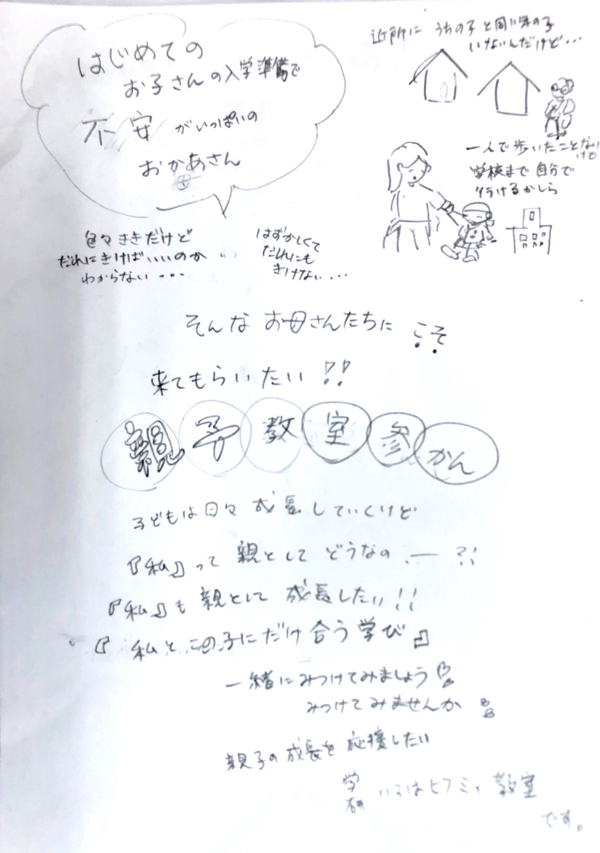 はじめての
お子さんの入学準備で
不安がいっぱいの
おかあさん
近所に うちの子と同い年の子
いないんだけど…
一人で歩いたことないけど
学校まで自分で
行けるかしら
色々ききだけど
だれにきけばいいのか
わからない…
はずかしくて
だれにも
きけない…
そんなお母さんたちにこそ
来てもらいたい!!
親子教室参かん
子どもは日々成長していくけど
『私』って親としてどうなのー?!
『私』も親として成長したい!!
『私とこの子にだけ合う学び』
一緒にみつけてみましょう
みつけてみませんか
親子の成長を応援したい
学研 いろは 教室
です。